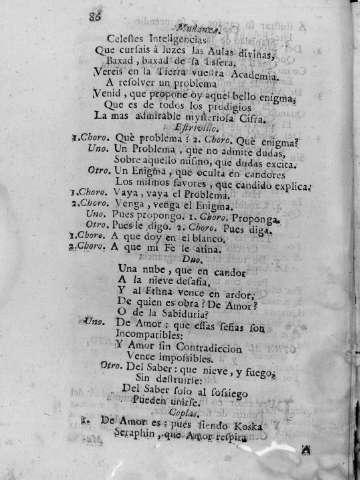 86
Mudanza.
Celestes Inteligencias
Que cursais à luzes las Aulas divinas,
Baxad, baxad de ssa Esfera,
Vereis en la Tierra vuestra Academia.
A resolver un problema
Venid, que propone oy aquel bello enigma,
Que es de todos los prodigios
La mas admirable mysteriosa Cifra.
Estrivillo.
1.Choro. Què problema? 2. Choro. Què enigma?
Uno. Un Problema, que no admite dudas,
Sobre aquello mismo, que dudas excita.
Otro. Un Enigma, que oculta en candores
Los mismos favores, que candido explica.
1.Choro. Vaya, vaya el Problema.
2.Choro. Venga, venga el Enigma.
Uno. Pues propongo. 1. Choro. Proponga.
Otro. Pues le digo. 2. Choro. Pues diga.
1.Choro. A que doy en el blanco.
2.Choro. A que mi Fe le atina.
Duo.
Una nube, que en candor
A la nieve desafia,
Y al Ethna vence en ardor,
De quien es obra? De Amor?
O de la Sabiduria?
Uno. De Amor: que essas señas son
Incompatibles:
Y Amor sin Contradiccion
Vence impossibles.
Otro. Del Saber: que nieve, y fuego,
Sin destruirse:
Del Saber solo al sossiego
Pueden unirse.
Coplas.
1. De Amor es: pues siendo Koska
Seraphin, que Amor respira
A